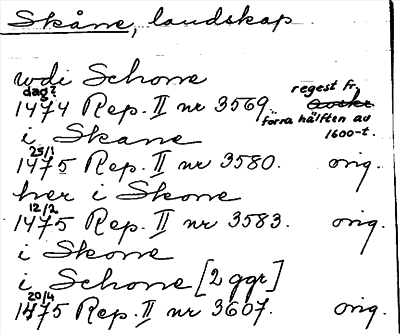 Skåne, landskap
udi Schone
dag?
1474 Rep. II nr 3569. regest fr.
förra hälften av
1600-t.
i Skane
25/1
1475 Rep. II nr 3580. orig.
her i Skone
12/2
1475 Rep. II nr 3583. orig.
i Skone
i Schone [2 ggr]
20/4
1475 Rep. II nr 3607. orig.